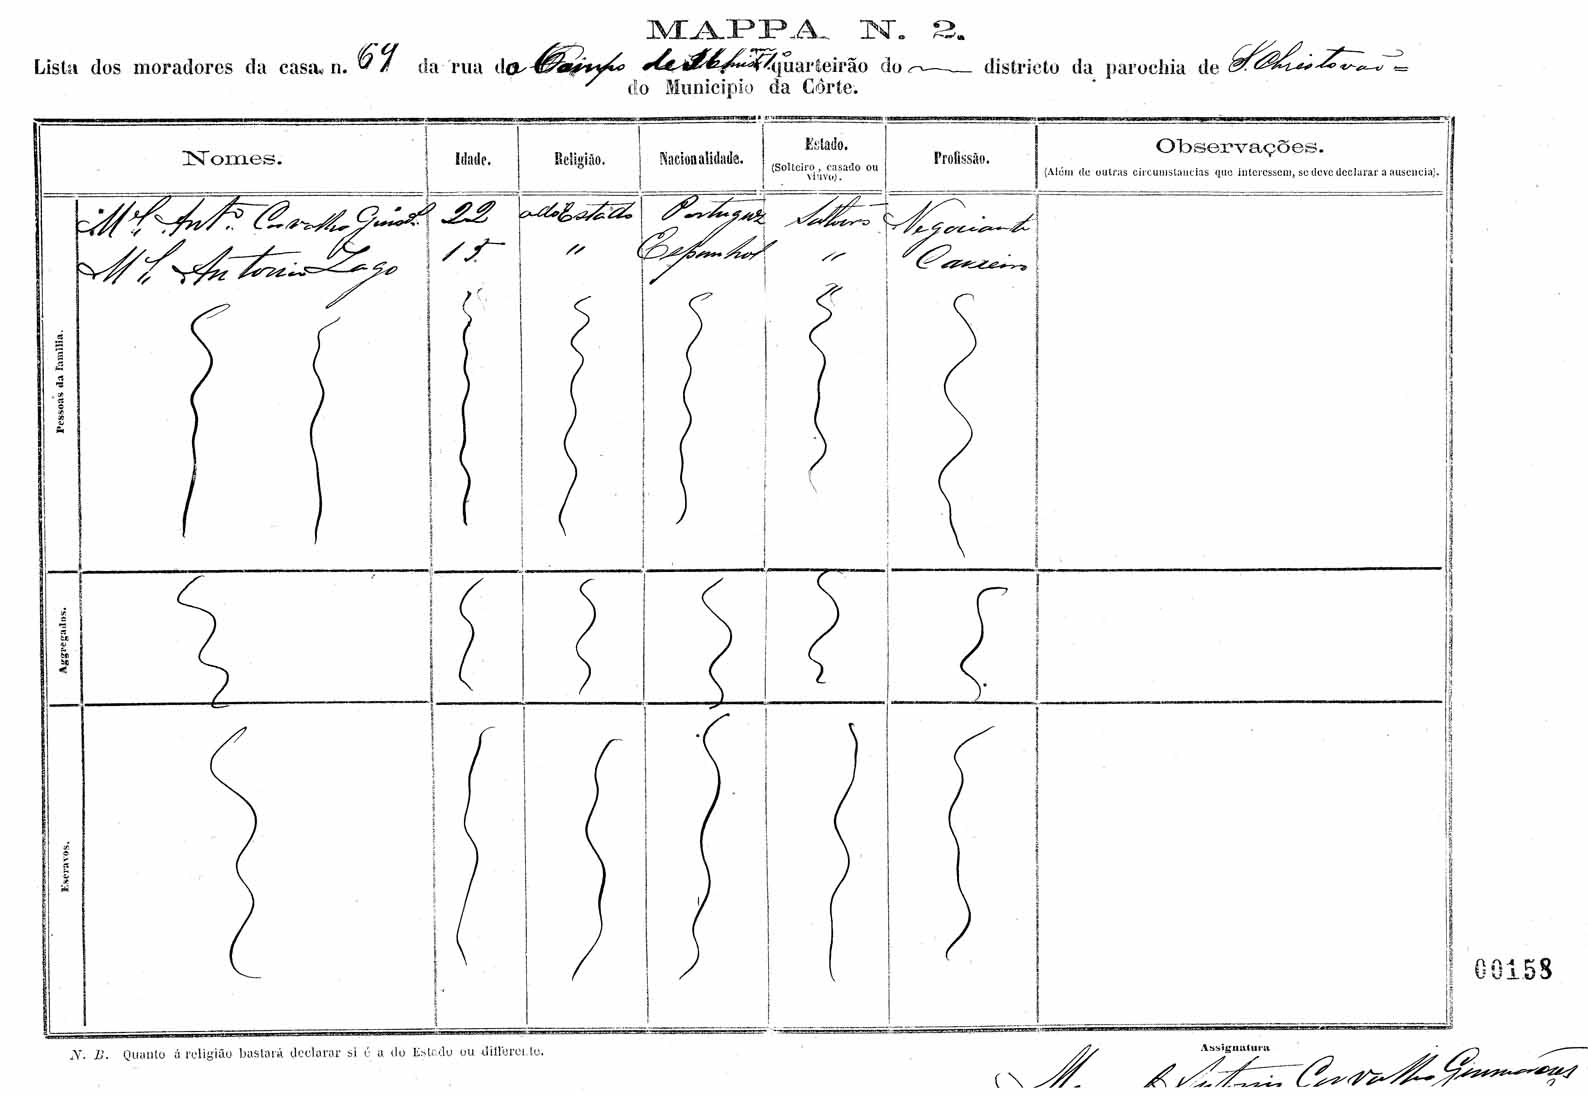 MAPPA N. 2.
Lista dos moradores da casa n. 69 da rua do Campo de S. Christ.ᵒᵐ quarteirão do districto da parochia de S. Christovão =
do Municipio da Côrte.
Nomes. Idade. Religião. Nacionalidade. Estado. (Solteiro, casado ou viuvo). Profissão. Observações. (Além de outras circumstancias que interessem, se deve declarar a ausencia).
Pessoas da familia.
M.el Ant.o Carvalho Guim.es 22 a do Estado Portuguez Solteiro Negociante
M.el Antonio Lago 15 " Espanhol " Caixeiro
Aggregados.
Escravos.
00158
N. B. Quanto á religião bastará declarar si é a do Estado ou differente.
Assignatura
M. Antonio Carvalho Guimarães